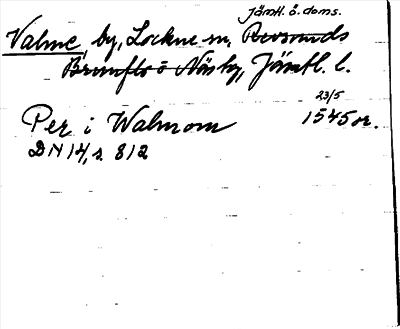 Jämtl. ö. doms.
Valme, by, Lockne sn, Revsunds
Brunflo o Näs tg, Jämtl. l.
23/5
Per i Walmom 1545 or.
DN 14, s. 812